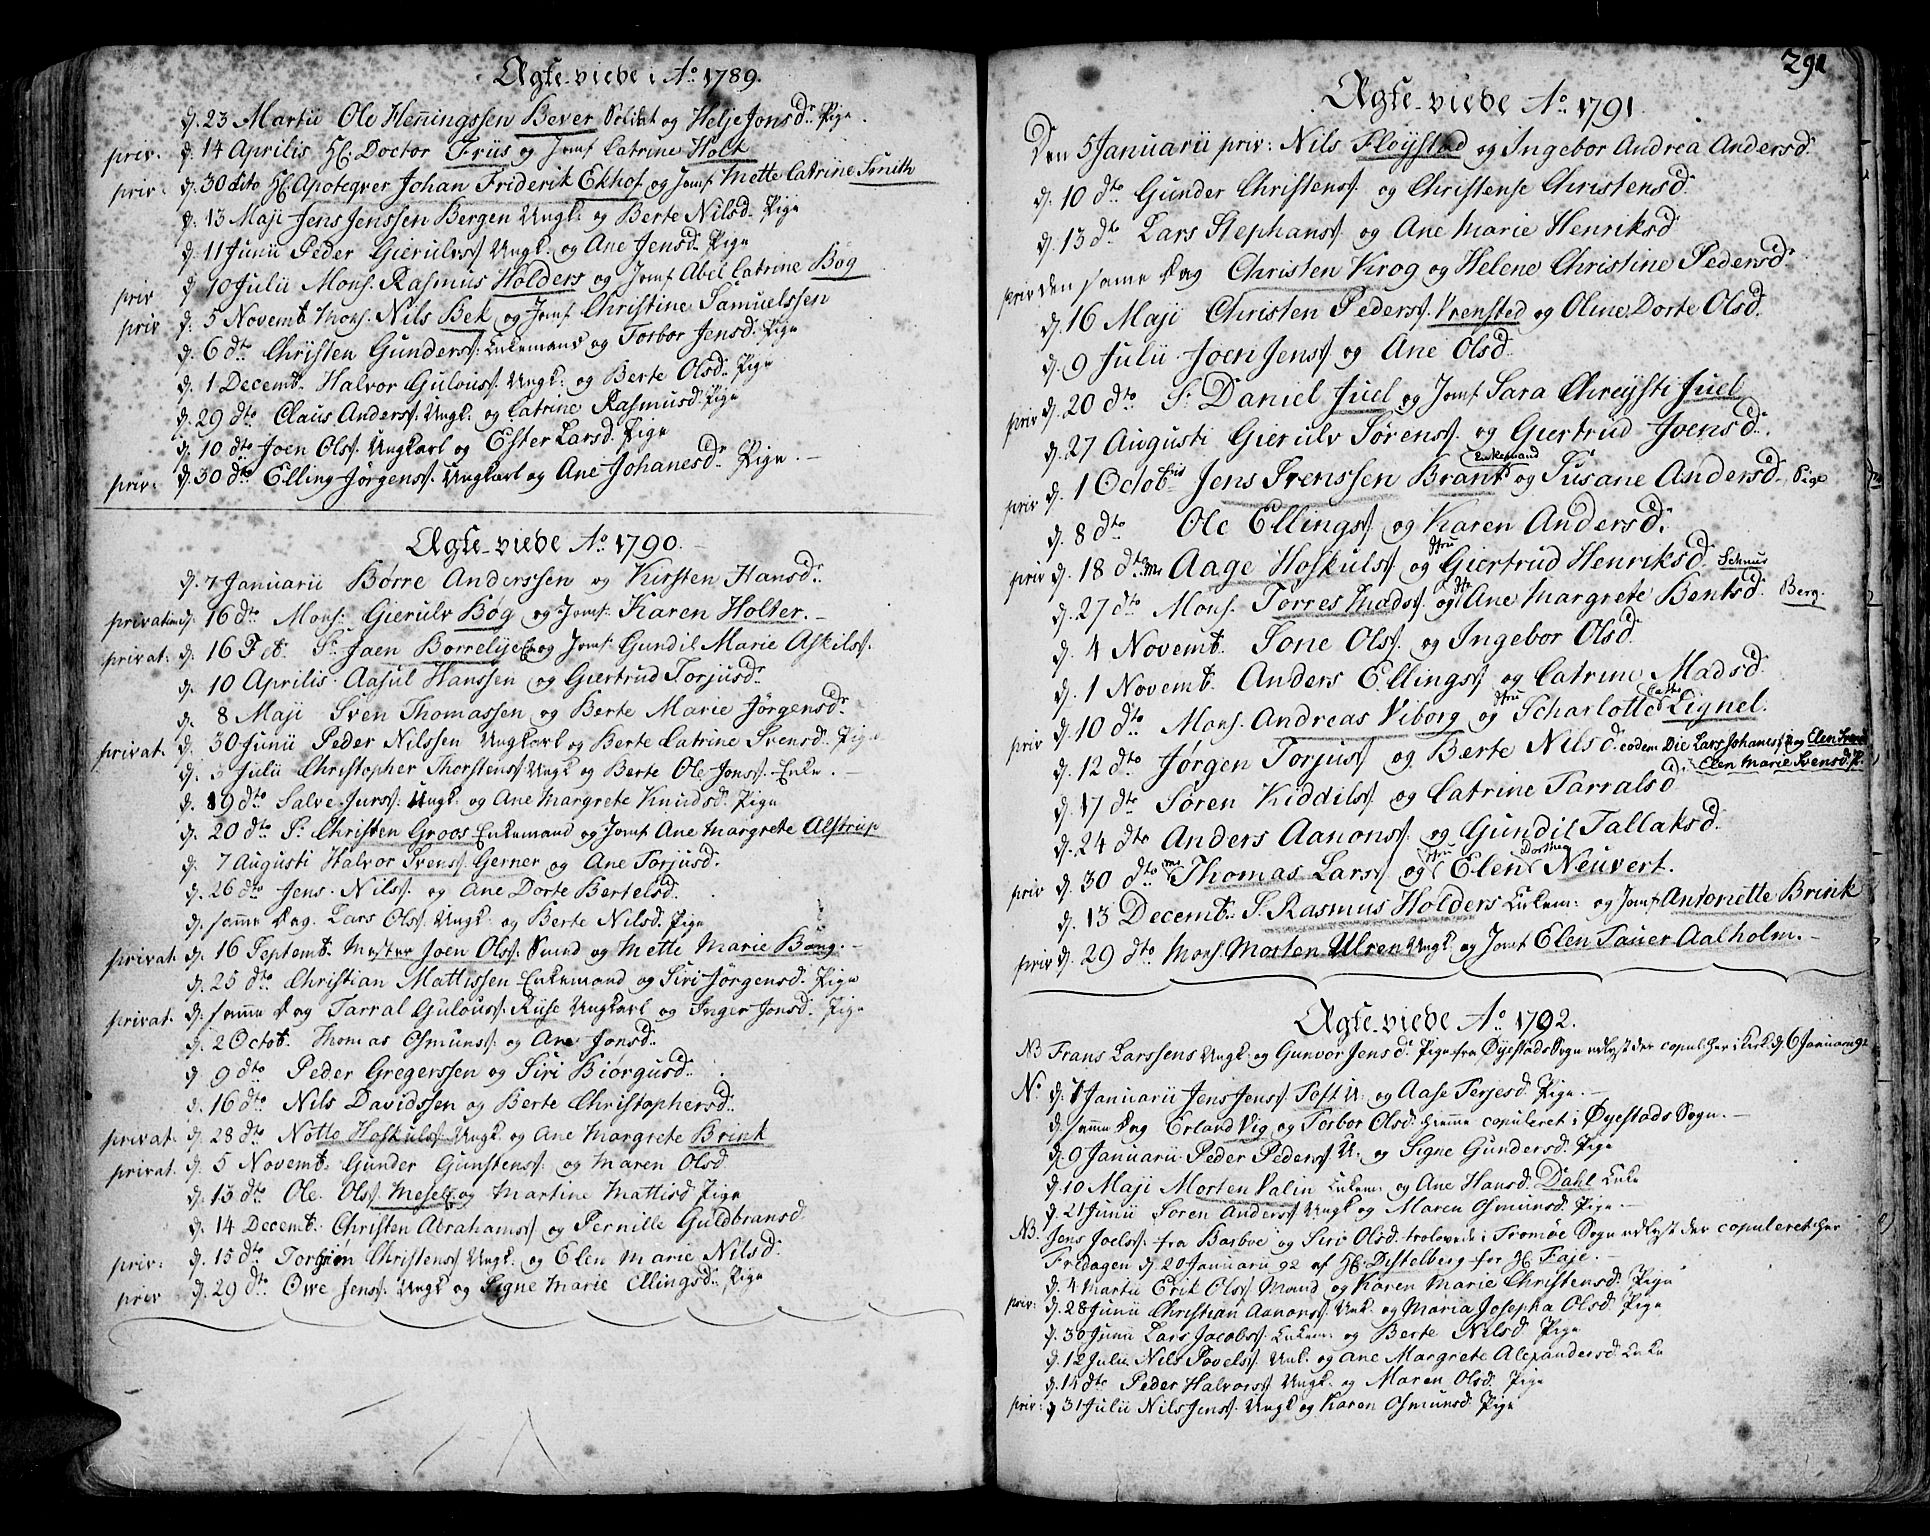 Ægte-viede i Ao 1789.
d. 23 Martii Ole Henningssen Bever Soldat og Helje Jonsdr. Pige.
priv. d. 14 Aprilis Hr. Doctor Friis og Jomf Catrine Holt
priv: d. 30 dito Hr. Apoteqver Johan Friderik Ekhof og Jomf Mette Catrine Smith
d. 13 Maji Jens Jenssen Bergen Ungk: og Berte Nilsd. Pige
d. 11 Junii Peder Gierulvs. Ungk: og Ane Jensd. Pige
priv d. 10 Julii Mons. Rasmus Holders og Jomf Abel Catrine Bøg
priv d. 5 Novemb. Mons. Nils Bek og Jomf Christine Samuelssen
d. 6 dto Christen Gunders. Enkemand og Torbor Jensd. Pige
d. 1 Decemb. Halvor Gulous. Ungk: og Berte Olsd. Pige
d. 29 dto Claus Anders. Ungk: og Catrine Rasmusd. Pige
d. 10 dto Joen Ols. Ungkarl og Ester Larsd. Pige
priv: d. 30 dto Elling Jørgens. Ungkarl og Ane Johanesdr. Pige. -
Ægte-viede Ao 1790. -
d. 7 Januarii Børre Anderssen og Kirsten Hansdr.
privatim d. 16 dto Mons: Gierulv Bøg og Jomf: Karen Holter. -
privat: d. 16 Sr Jaen Borrelye og Jomf: Gundil Marie Askils.
d. 10 Aprilis Aasul Hanssen og Giertrud Torjusdr.
d. 8 Maji Sven Thomassen og Berte Marie Jørgensdr.
privat. d. 30 Junii Peder Nilssen Ungkarl og Berte Catrine Svensd. Pige
d. 3 Julii Christopher Thorstens. Ungk: og Berte Ole Jons. Enke. -
d. 19 dto Salve Jurs. Ungk: og Ane Margrete Knudsd. Pige
d. 20 dto Sr Christen Groos Enkemand og Jomf Ane Margrete Alstrup
d. 7 Augusti Halvor Svens. Gerner og Ane Torjusd.
d. 26 dto Jens Nils. og Ane Dorte Bertelsd.
d. samme Dag Lars Ols. Ungk. og Berte Nilsd. Pige
privat. d. 16 Septemb. Mester Joen Ols. Smed og Mette Marie Baug. -
d. 25 dto Christian Mattissen Enkemand og Siri Jørgensd. Pige
privat. d. samme Dag Tarral Gulous. Riise Ungkarl og Inger Jonsd. Pige
d. 2 Octob. Thomas Osmuns. og Ane Jonsd.
d. 9 dto Peder Gregerssen og Siri Biørgusd.
d. 16 dto Nils Davidssen og Berte Christophersd.
privat. d. 28 dto Notto Hoskuls. Ungk: og Ane Margrete Brink
privat. d. 5 Novemb. Gunder Gunstens. og Maren Olsd
d. 13 dto Ole Ols. Mesel og Martine Mattisd Pige
d. 14 Decemb. Christen Abrahams. og Pernille Guldbransd.
priv: d. 15 dto Torgiøn Christens. Ungk: og Elen Marie Nilsd.
priv d. 29 dto Owe Jens. Ungk og Signe Marie Ellingsd. Pige
291
Ægte-viede Ao 1791.
Den 5 Januarii priv: Nils Fløystad og Ingebor Andrea Andersd.
d. 10 dto Gunder Christens. og Christense Christensd.
d. 13 dto Lars Stephans. og Ane Marie Henriksd.
priv den same Dag Christen Krog og Helene Christine Pedersd.
d. 16 Maji Christen Peders. Vrensted og Oline Dorte Olsd.
d. 9 Julii Joen Jens. og Ane Olsd.
priv d. 20 dto Sr Daniel Juel og Jomf Sara Chreysti Juel
d. 27 Augusti Gierulv Sørens. og Giertrud Ivensd.
Enkemand
priv d. 1 Octobris Jens Svenssen Brant og Susane Andersd. Pige
d. 8 dto Ole Ellings. og Karen Andersd.
priv d. 18 dto Mr Aage Hoskuls. og Jfru Giertrud Henriksd. Schnus
d. 27 dto Mons. Torres Mads. og Ane Margrete Bentsd. Berg.
d. 4 Novemb. Tone Ols. og Ingebor Olsd.
d. 1 Novemb. Anders Ellings. og Catrine Madsd.
priv d. 10 dto Mons. Andreas Viborg og Jfru Scharlotte Lignel.
d. 12 dto Jørgen Torjus. og Berte Nilsd. eodem Die Lars Johanes. og Elen
Elen Marie Svensd. P.
d. 17 dto Søren Kiddils. og Catrine Tarralsd
d. 24 dto Anders Aanons. og Gundil Tallaksd.
priv d. 30 dto Mr Thomas Lars. og Jfru Elen Dortea Neuvert.
d. 13 Decemb. S. Rasmus Holders Enkem: og Jomf Antoniette Brink
priv d. 29 dto Mons. Morten Ulren Ungk og Jomf Elen Tauer Aalholm. -
Ægte-viede Ao 1792.
NB Frans Larssens Ungk: og Gunvor Jensd. Pige fra Øyestads Sogn udlyst der copul. her i Kirk. d 6 Januarii 92
No d. 7 Januarii Jens Jens. Tost U: og Aase Terjesd. Pige. -
d. samme Dag Erland Vig og Torbor Olsd. hieme copuleret i Øyestads Sogn. -
d. 9 Januarii Peder Peders. U: og Signe Gundersd. Pige
d. 10 Maji Morten Valin Enkem: og Ane Hansd. Dahl Enke
d. 21 Junii Søren Anders. Ungk og Maren Osmunsd. Pige. -
NB. Jens Joels. fra Barboe og Siri Olsd. trolovede i Tromøe Sogn udlyst der copuleret her
Fredagen d. 20 Januarii 92 af Hr. Distelberg for Hr. Faje. -
d. 4 Martii Erik Ols. Mand og Karen Marie Christensd. Pige
priv: d. 28 Junii Christian Aanons. Unk. og Maria Josepha Olsd. Pige
d. 30 Junii Lars Jacobs. Enkem: og Berte Nilsd. Pige
d. 12 Julii Nils Povels. Unk: og Ane Margrete Alexandersd. Enke
d. 14 dto Peder Halvors. Ungk. og Maren Olsd. Pige
priv: d. 31 Julii Nils Jens. Ungk og Karen Osmunsd. Pige